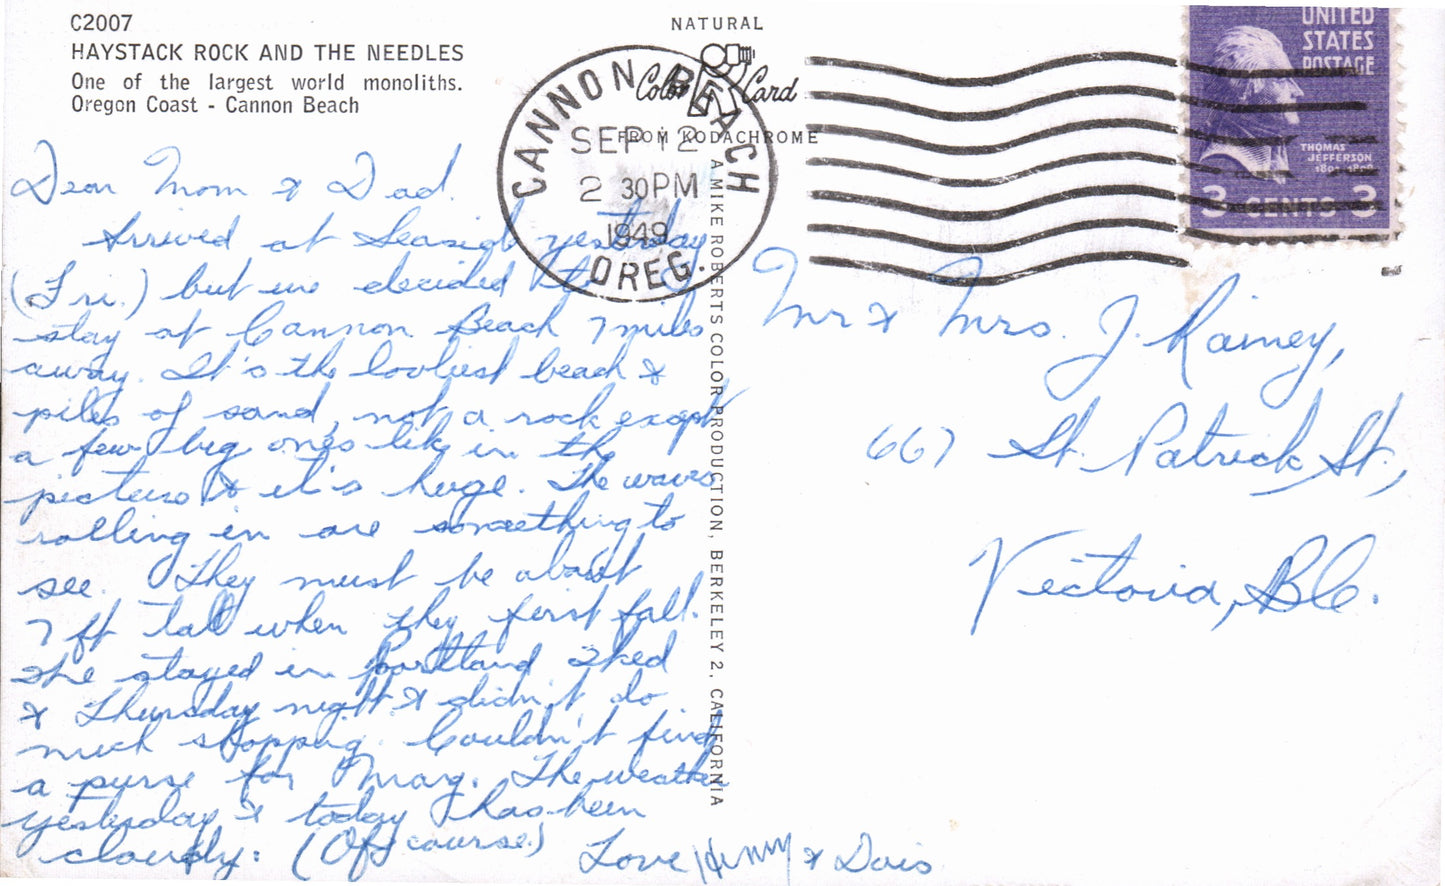 C2007
HAYSTACK ROCK AND THE NEEDLES
One of the largest world monoliths.
Oregon Coast - Cannon Beach
NATURAL
Color Card
FROM KODACHROME
CANNON BEACH
SEP 12
2 30PM
1949
OREG.
UNITED
STATES
POSTAGE
THOMAS
JEFFERSON
3 CENTS 3
A MIKE ROBERTS COLOR PRODUCTION, BERKELEY 2, CALIFORNIA
Dear Mom & Dad.
Arrived at Seaside yesterday
(Fri.) but we decided to
stay at Cannon Beach 7 miles
away. It's the lovliest beach &
piles of sand, not a rock except
a few big ones like in the
picture & it's huge. The waves
rolling in are something to
see. They must be about
7 ft tall when they first fall.
We stayed in Portland Wed
& Thursday night & didn't do
much shopping. Couldn't find
a purse for Mary. The weather
yesterday & today has been
cloudy. (Of course)
Love Henry & Doris
Mr & Mrs. J. Rainey,
667 St. Patrick St.,
Victoria, B.C.